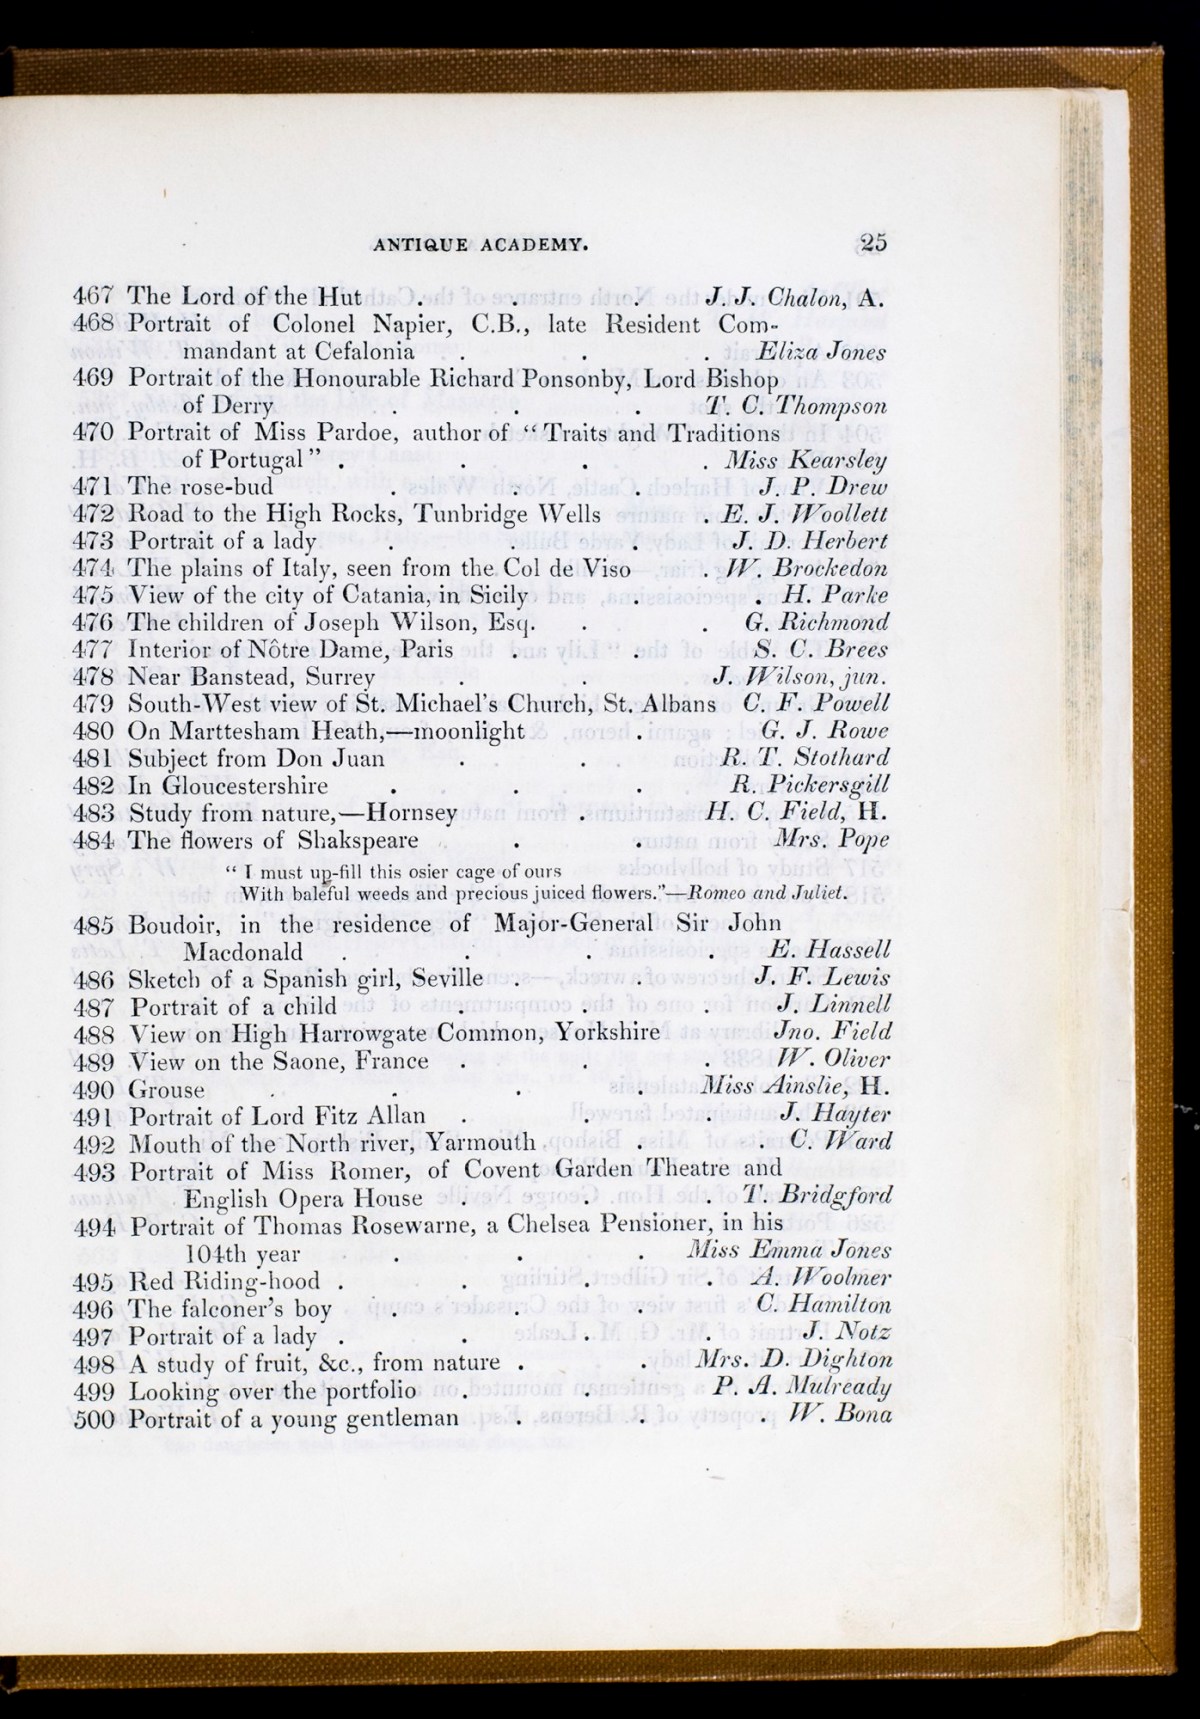 ANTIQUE ACADEMY. 25
467 The Lord of the Hut . . . J. J. Chalon, A.
468 Portrait of Colonel Napier, C.B., late Resident Com-
mandant at Cefalonia . . . Eliza Jones
469 Portrait of the Honourable Richard Ponsonby, Lord Bishop
of Derry . . . T. C. Thompson
470 Portrait of Miss Pardoe, author of “Traits and Traditions
of Portugal” . . . . Miss Kearsley
471 The rose-bud . . . J. P. Drew
472 Road to the High Rocks, Tunbridge Wells . E. J. Woollett
473 Portrait of a lady . . . J. D. Herbert
474 The plains of Italy, seen from the Col de Viso . W. Brockedon
475 View of the city of Catania, in Sicily . . H. Parke
476 The children of Joseph Wilson, Esq. . . G. Richmond
477 Interior of Nôtre Dame, Paris . . S. C. Brees
478 Near Banstead, Surrey . . J. Wilson, jun.
479 South-West view of St. Michael's Church, St. Albans C. F. Powell
480 On Marttesham Heath,—moonlight . G. J. Rowe
481 Subject from Don Juan . . R. T. Stothard
482 In Gloucestershire . . . R. Pickersgill
483 Study from nature,—Hornsey . H. C. Field, H.
484 The flowers of Shakspeare . . Mrs. Pope
“ I must up-fill this osier cage of ours
With baleful weeds and precious juiced flowers.”—Romeo and Juliet.
485 Boudoir, in the residence of Major-General Sir John
Macdonald . . . . E. Hassell
486 Sketch of a Spanish girl, Seville . . J. F. Lewis
487 Portrait of a child . . . J. Linnell
488 View on High Harrowgate Common, Yorkshire Jno. Field
489 View on the Saone, France . . . W. Oliver
490 Grouse . . . . Miss Ainslie, H.
491 Portrait of Lord Fitz Allan . . . J. Hayter
492 Mouth of the North river, Yarmouth . . C. Ward
493 Portrait of Miss Romer, of Covent Garden Theatre and
English Opera House . . . T. Bridgford
494 Portrait of Thomas Rosewarne, a Chelsea Pensioner, in his
104th year . . . Miss Emma Jones
495 Red Riding-hood . . . . A. Woolmer
496 The falconer's boy . . . C. Hamilton
497 Portrait of a lady . . . . J. Notz
498 A study of fruit, &c., from nature . . Mrs. D. Dighton
499 Looking over the portfolio . . P. A. Mulready
500 Portrait of a young gentleman . . . W. Bona